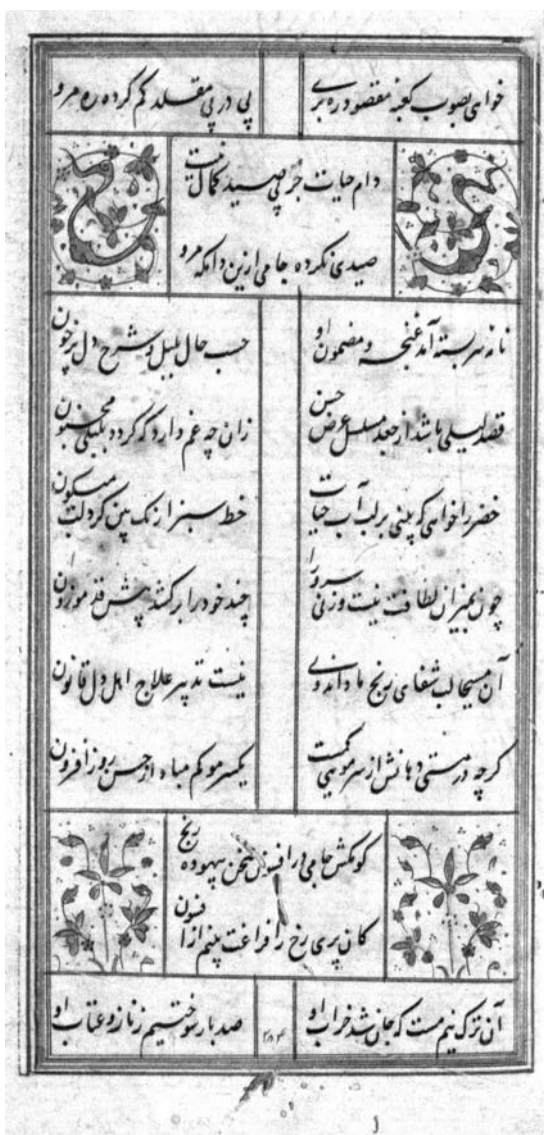 خواهی بصوب کعبه مقصود ره بری پی در پی مقلد گم کرده ره مرو
دام حیات جز پی صید کمال نیست
صیدی نکرده جامی ازین دامگه مرو
نامه سربسته آمد غنچه و مضمون او حسب حال بلبل و شرح دل پرخون
قصد لیلی باشد از جعد مسلسل عرض حسن زان چه غم دارد که گردد مجنون
خضر را خواهی که بینی بر لب آب حیات خط سبز اینک ببین گرد لب میگون
چون بمیزان لطافت نیست وزنی سرو را چند خود را برکشد پیش قد موزون
آن مسیحا لب شفای رنج ما داند ولی نیست تدبیر علاج اهل دل قانون
گرچه در هستی دهانش از سر مویی کمست یکسر مو کم مباد از حسن روز افزون
گو مکش جامی در افسون سخن بیهوده رنج
کان پری رخ را فراغت بینم از افسون
آن ترک نیم مست که جان شد خراب او صد بار سوختیم ز ناز و عتاب او